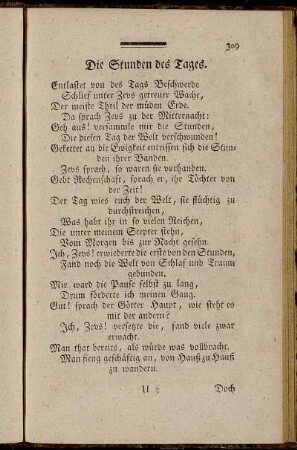 309
Die Stunden des Tages.
Entlastet von des Tags Beschwerde
Schlief unter Zevs getreuer Wacht,
Der meiste Theil der müden Erde.
Da sprach Zevs zu der Mitternacht:
Geh aus! versammle mir die Stunden,
Die diesen Tag der Welt verschwunden!
Gekettet an die Ewigkeit entrissen sich die Stun-
den ihrer Banden.
Zevs sprach, so waren sie vorhanden.
Gebt Rechenschaft, sprach er, ihr Töchter von
der Zeit!
Der Tag wies euch der Welt, sie flüchtig zu
durchstreichen,
Was habt ihr in so vielen Reichen,
Die unter meinem Scepter stehn,
Vom Morgen bis zur Nacht gesehn.
Ich, Zevs! erwiederte die erste von den Stunden,
Fand noch die Welt von Schlaf und Traum
gebunden.
Mir ward die Pause selbst zu lang,
Drum förderte ich meinen Gang.
Gut! sprach der Götter Haupt, wie steht es
mit der andern?
Ich, Zevs! versetzte die, fand viele zwar
erwacht.
Man that bereits, als würde was vollbracht.
Man fieng geschäftig an, von Hauß zu Hauß
zu wandern.
U 3
Doch